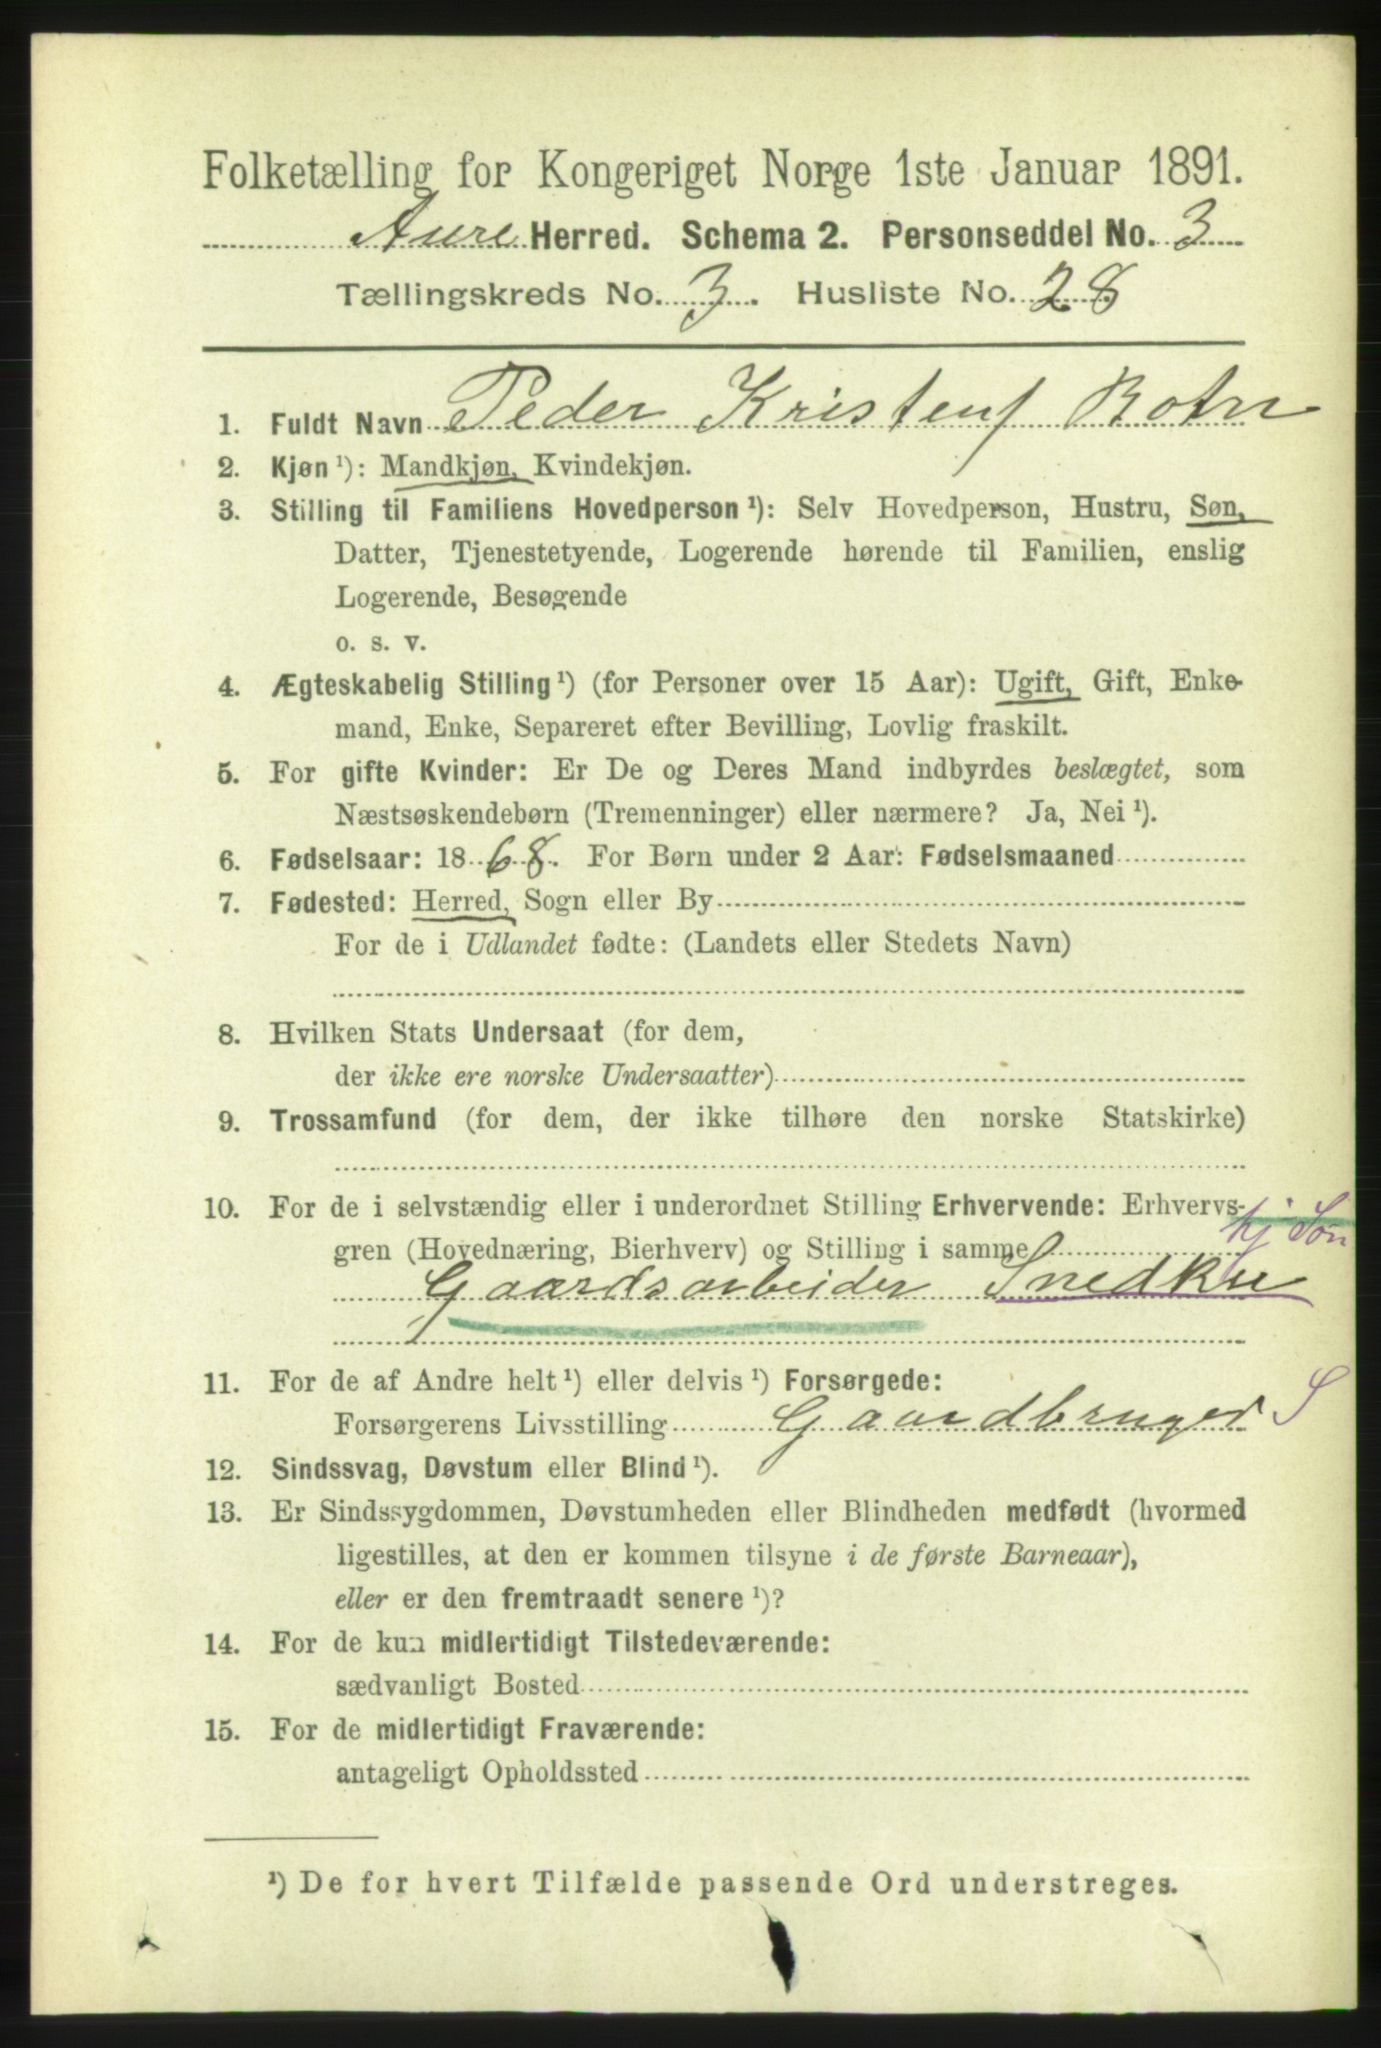 Folketælling for Kongeriget Norge 1ste Januar 1891.
Aure Herred. Schema 2. Personseddel No. 3
Tællingskreds No. 3. Husliste No. 28
1. Fuldt Navn Peder Kristens Botn
2. Kjøn ¹): Mandkjøn, Kvindekjøn.
3. Stilling til Familiens Hovedperson ¹): Selv Hovedperson, Hustru, Søn,
Datter, Tjenestetyende, Logerende hørende til Familien, enslig
Logerende, Besøgende
o. s. v.
4. Ægteskabelig Stilling ¹) (for Personer over 15 Aar): Ugift, Gift, Enke-
mand, Enke, Separeret efter Bevilling, Lovlig fraskilt.
5. For gifte Kvinder: Er De og Deres Mand indbyrdes beslægtet, som
Næstsøskendebørn (Tremenninger) eller nærmere? Ja, Nei ¹).
6. Fødselsaar: 1868. For Børn under 2 Aar: Fødselsmaaned
7. Fødested: Herred, Sogn eller By
For de i Udlandet fødte: (Landets eller Stedets Navn)
8. Hvilken Stats Undersaat (for dem,
der ikke ere norske Undersaatter)
9. Trossamfund (for dem, der ikke tilhøre den norske Statskirke)
10. For de i selvstændig eller i underordnet Stilling Erhvervende: Erhvervs-
hj Søn
gren (Hovednæring, Bierhverv) og Stilling i samme
Gaardsarbeider Snedker
11. For de af Andre helt ¹) eller delvis ¹) Forsørgede:
Forsørgerens Livsstilling Gaardbruger S
12. Sindssvag, Døvstum eller Blind ¹).
13. Er Sindssygdommen, Døvstumheden eller Blindheden medfødt (hvormed
ligestilles, at den er kommen tilsyne i de første Barneaar),
eller er den fremtraadt senere ¹)?
14. For de kun midlertidigt Tilstedeværende:
sædvanligt Bosted
15. For de midlertidigt Fraværende:
antageligt Opholdssted
¹) De for hvert Tilfælde passende Ord understreges.